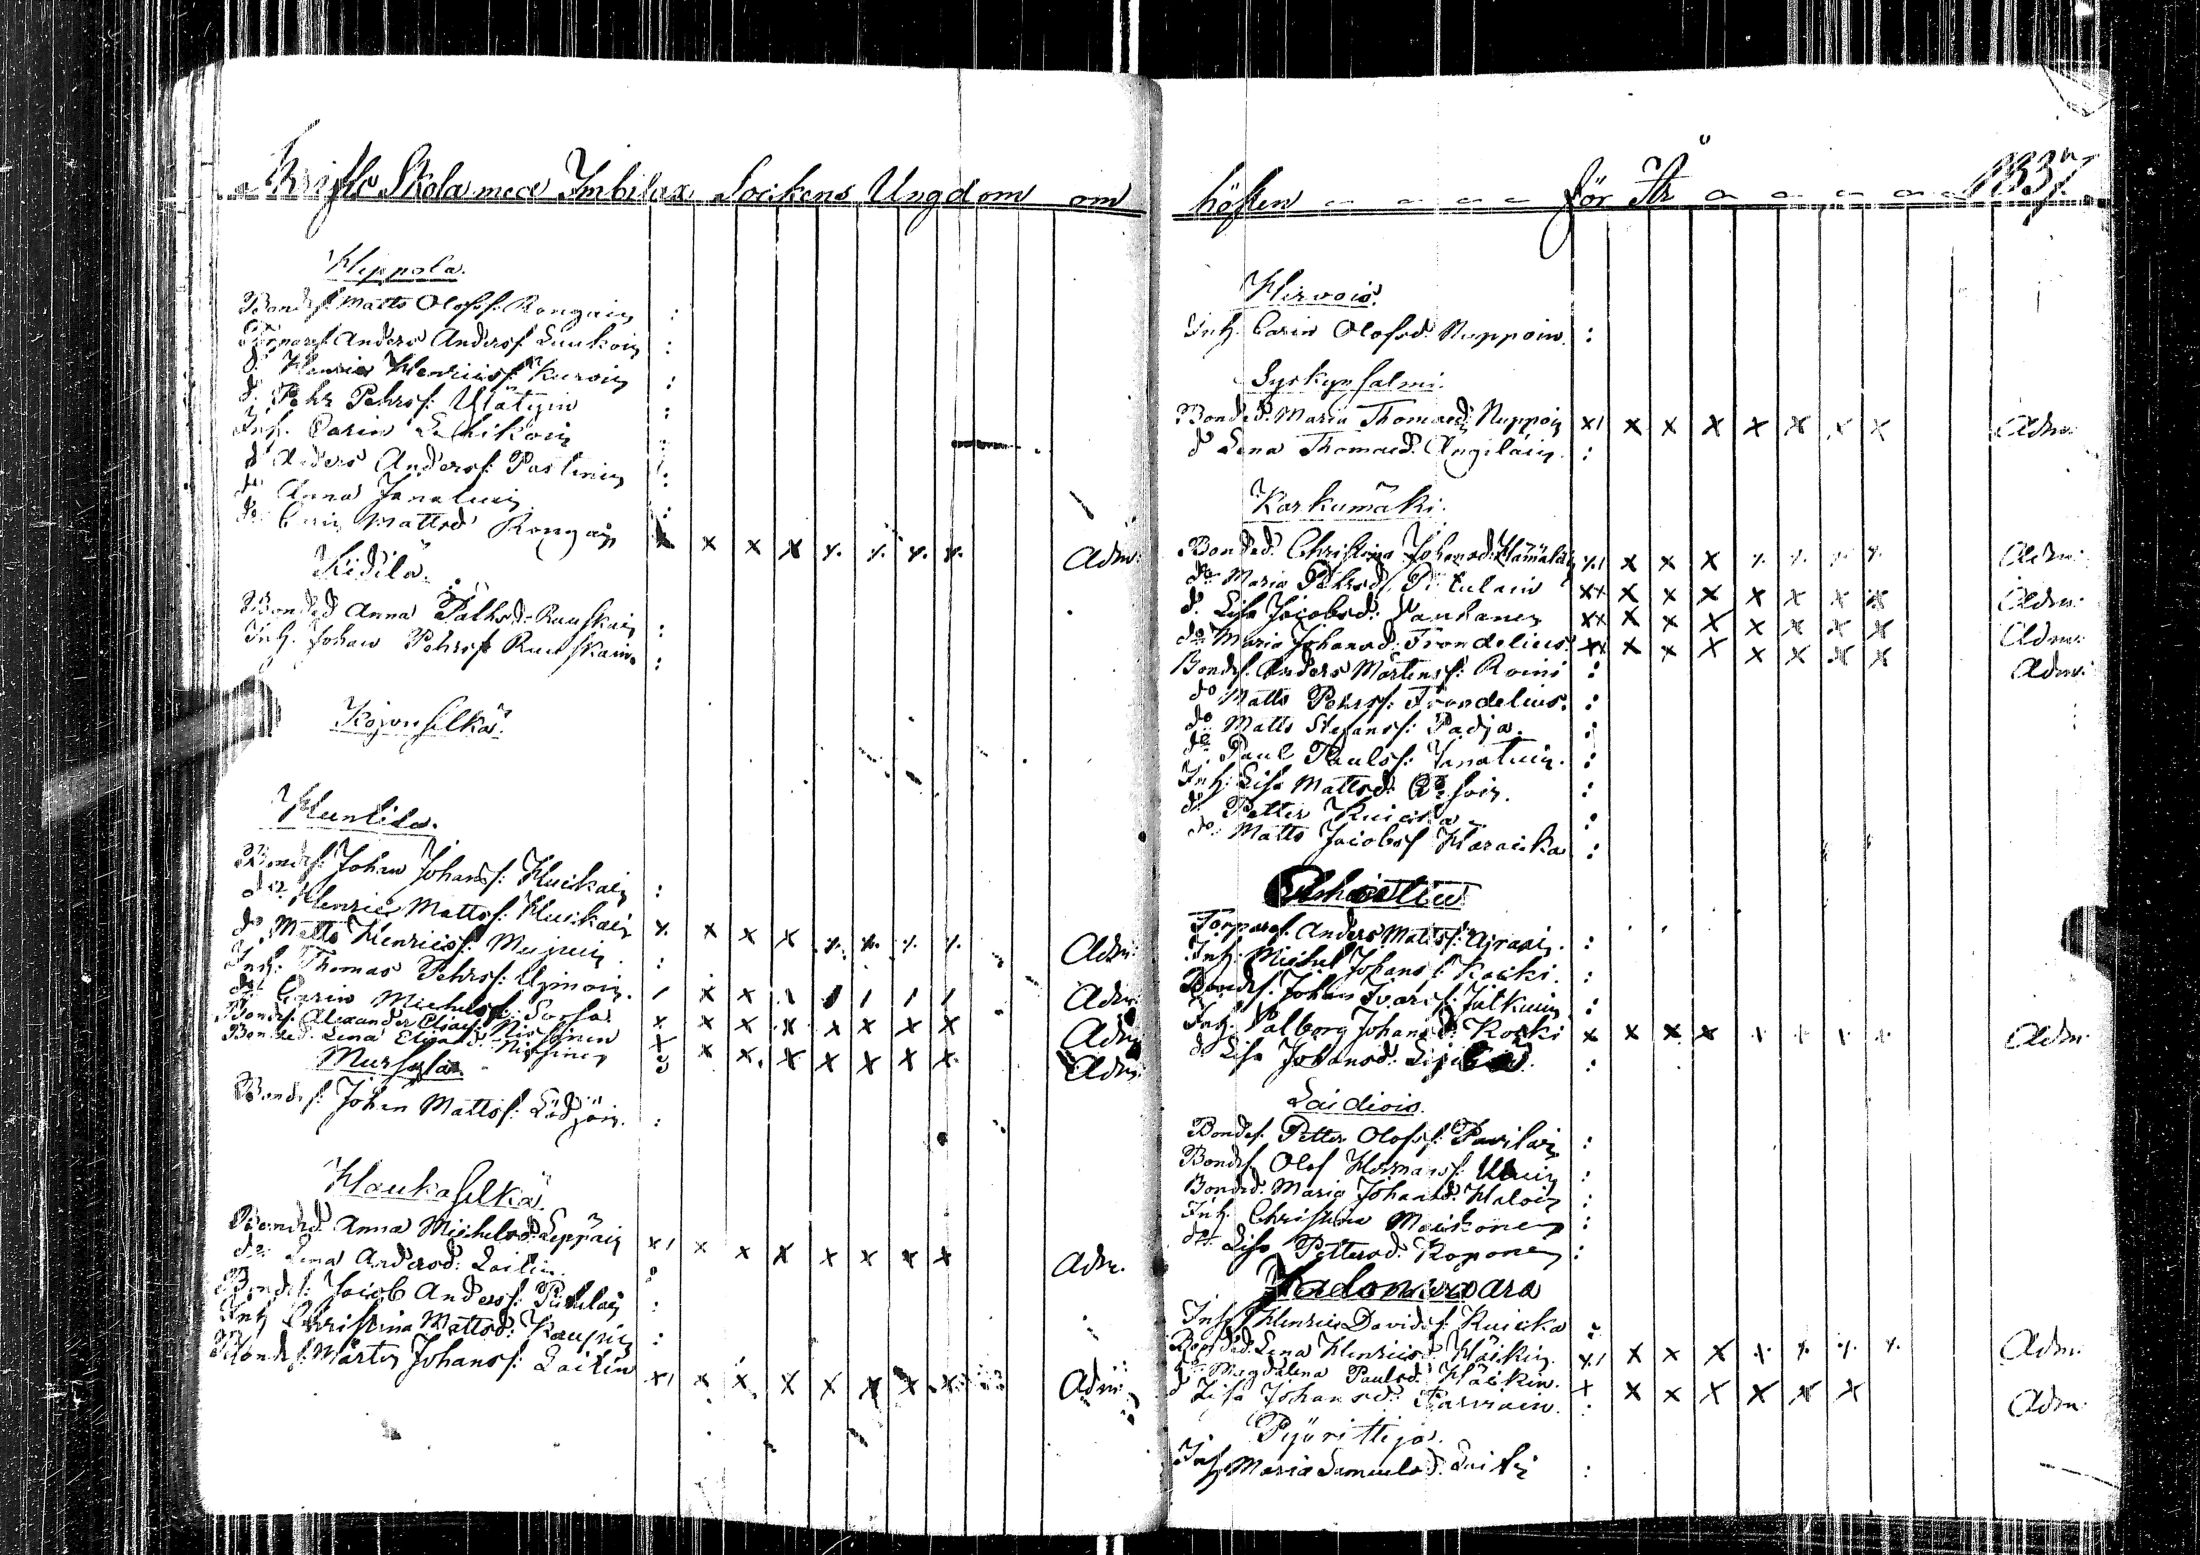 Skola med Imbilax Sockens Ungdom om
Hippola.
Bondes: Matts Olofss: Rongain :
Torpares Anders Anderss Luukoin :
d: Henric Henricss: Kuroin :
d: Pehr Pehrss: Ulätyin :
Inh. Carin Lehikoin :
d Anders Anderss: Pastinen :
do Anna Janatuin :
do Carin Mattsd Rongain x x x x x. x. x. x. Adm:
Kidilä.
Bonded Anna Pålhsd: Ruuskain :
Inh. Johan Pehrss Ruuskain :
Kojonselkä.
Huntila.
Bondes: Johan Johanss: Huikain :
do. Henric Mattss: Huikain x. x x x x. x. x. x. Adm:
do Matts Henricss: Mujuin :
Inh: Thomas Pehrss: Ujmoin / x x / / / / / Adm:
do: Carin Michelsd: Sorsa x x x x x x x x Adm
Bondes. Alexander Eliass: Nissinen x x x. x x x x x. Adm:
Bonded: Lena Eliasd: Nissinen :
Mursula.
Bondes: Johan Mattss: Lödjöin :
Haukaselkä.
Bonded: Anna Michelsd: Leppäin x/ x x x x x x x Adm.
do: Lena Andersd: Laitin :
Bondes: Jacob Anderss: Puhilain :
Inh Christina Mattsd: Kaupin :
Bondes: Mårten Johanss: Laitin x/ x x. x x x x x Adm:
hösten för År 1837
Hirvois.
Inh. Carin Olofsd: Nuppoin. :
Syskynsalmi.
Bonded: Maria Thomasd: Nuppoin x/ x x x x x x x Adm:
d Lena Thomasd: Angiläin :
Karkumäki.
Bonded: Christina Johansd: Hämäläin x/ x x x x. x. x. x. Adm:
do Maria Pehrsd: Pitulain xx x x x x x x x Adm:
d: Lisa Jacobsd: Vanhanen xx x x x x x x x Adm:
do Maria Johansd: Frondelius. xx x x x x x x x Adm:
Bondes. Anders Mårtenss: Roini :
do Matts Pehrss: Frondelius. :
do Matts Stefanss: Padja. :
do. Paul Paulss: Janatuin. :
Inh: Lisa Mattsd: :
do Petter Kuicka :
do: Matts Jacobss Haracka :
Torpares. Anders Mattss: :
Inh. Michel Johanss: Kocki. :
Bondes: Johan Ivarss: Jalkuin :
Inh. Valborg Johansd: Kocki x x x x x x x x Adm:
d Lisa Johansd: :
Laidiois.
Bondes. Petter Olofss: Pavilain :
Bondes Olof Hermanss: :
Bonded: Maria Johansd: Haloin :
Inh. Christina Moikonen :
do Lisa Pettersd: Koponen :
Jalonwaara
Inh Henric Davidss: Kuicka :
Bonded: Lena Henricsd: Häckin x/ x x x x. x. x. x. Adm:
do Magdalena Paulsd: Häckin. x x x x x x x Adm:
d Lisa Johansd: Parviain. :
Pyörittjä.
Inh Maria Samuelsd: :